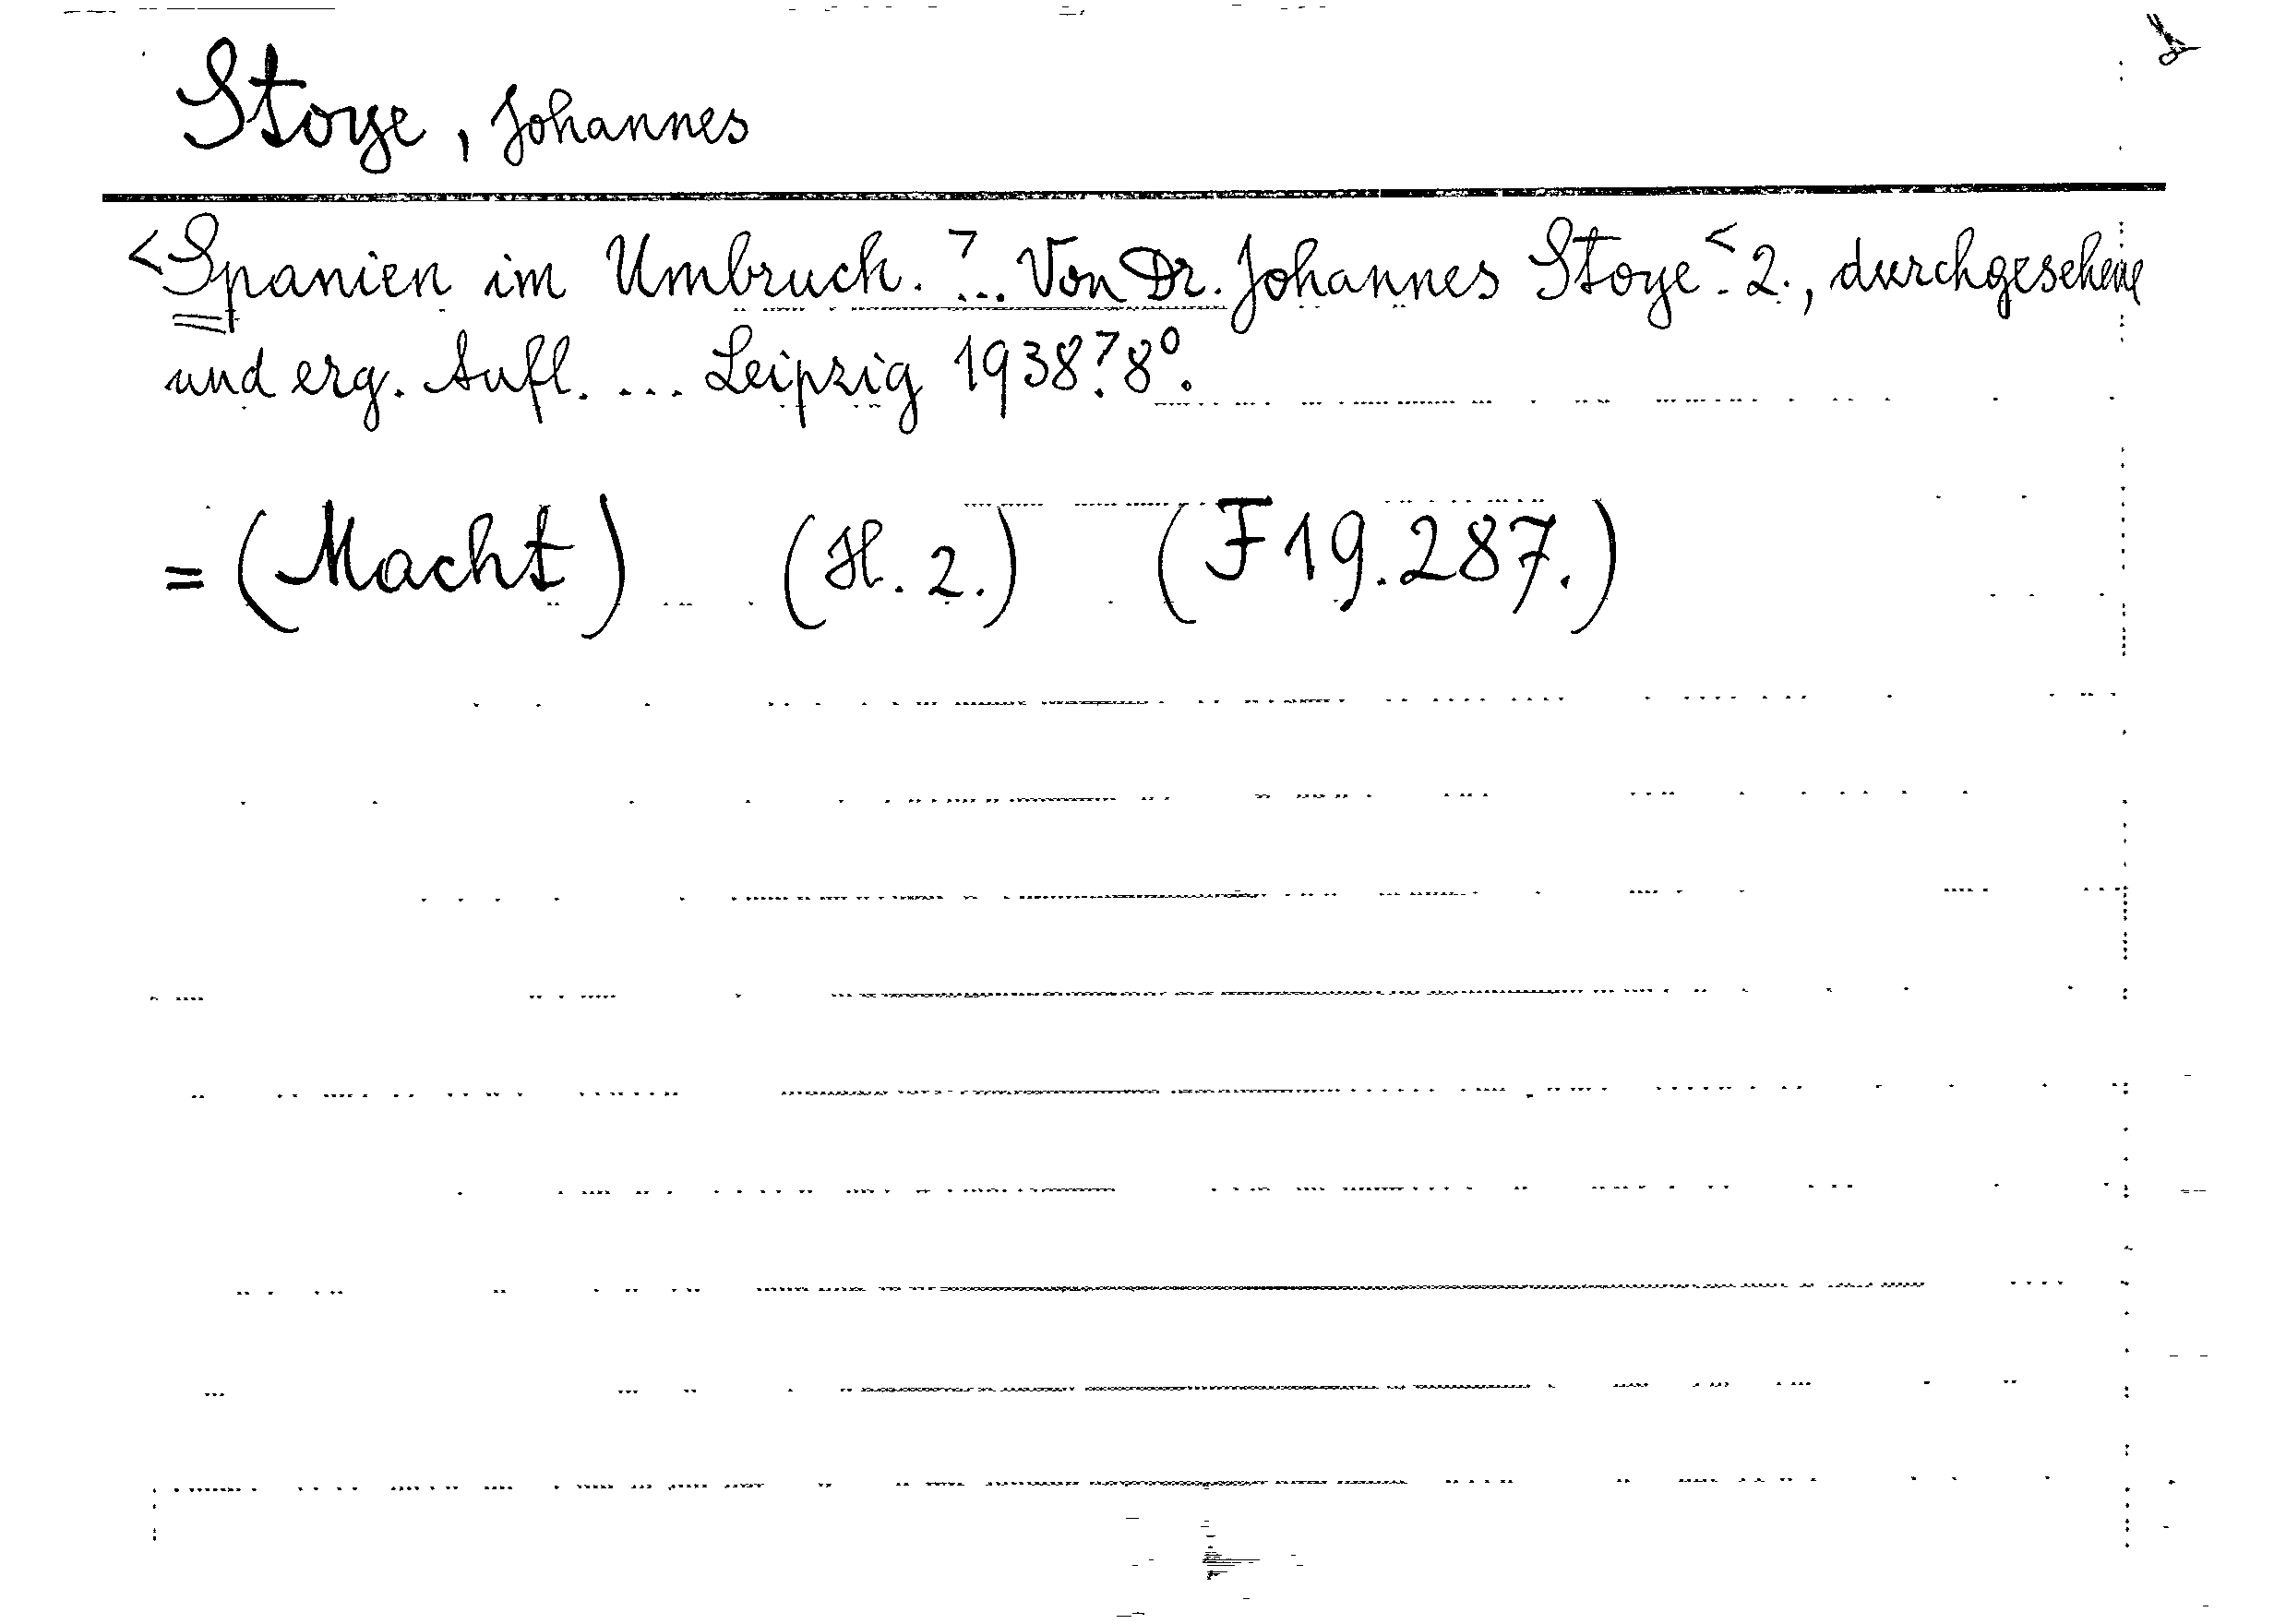 Stoye, Johannes
<Spanien im Umbruch.> ... Von Dr. Johannes Stoye.< 2., durchgesehene
und erg. Aufl. ... Leipzig 1938.> 8°.
= (Macht) (H. 2.) (F 19.287.)